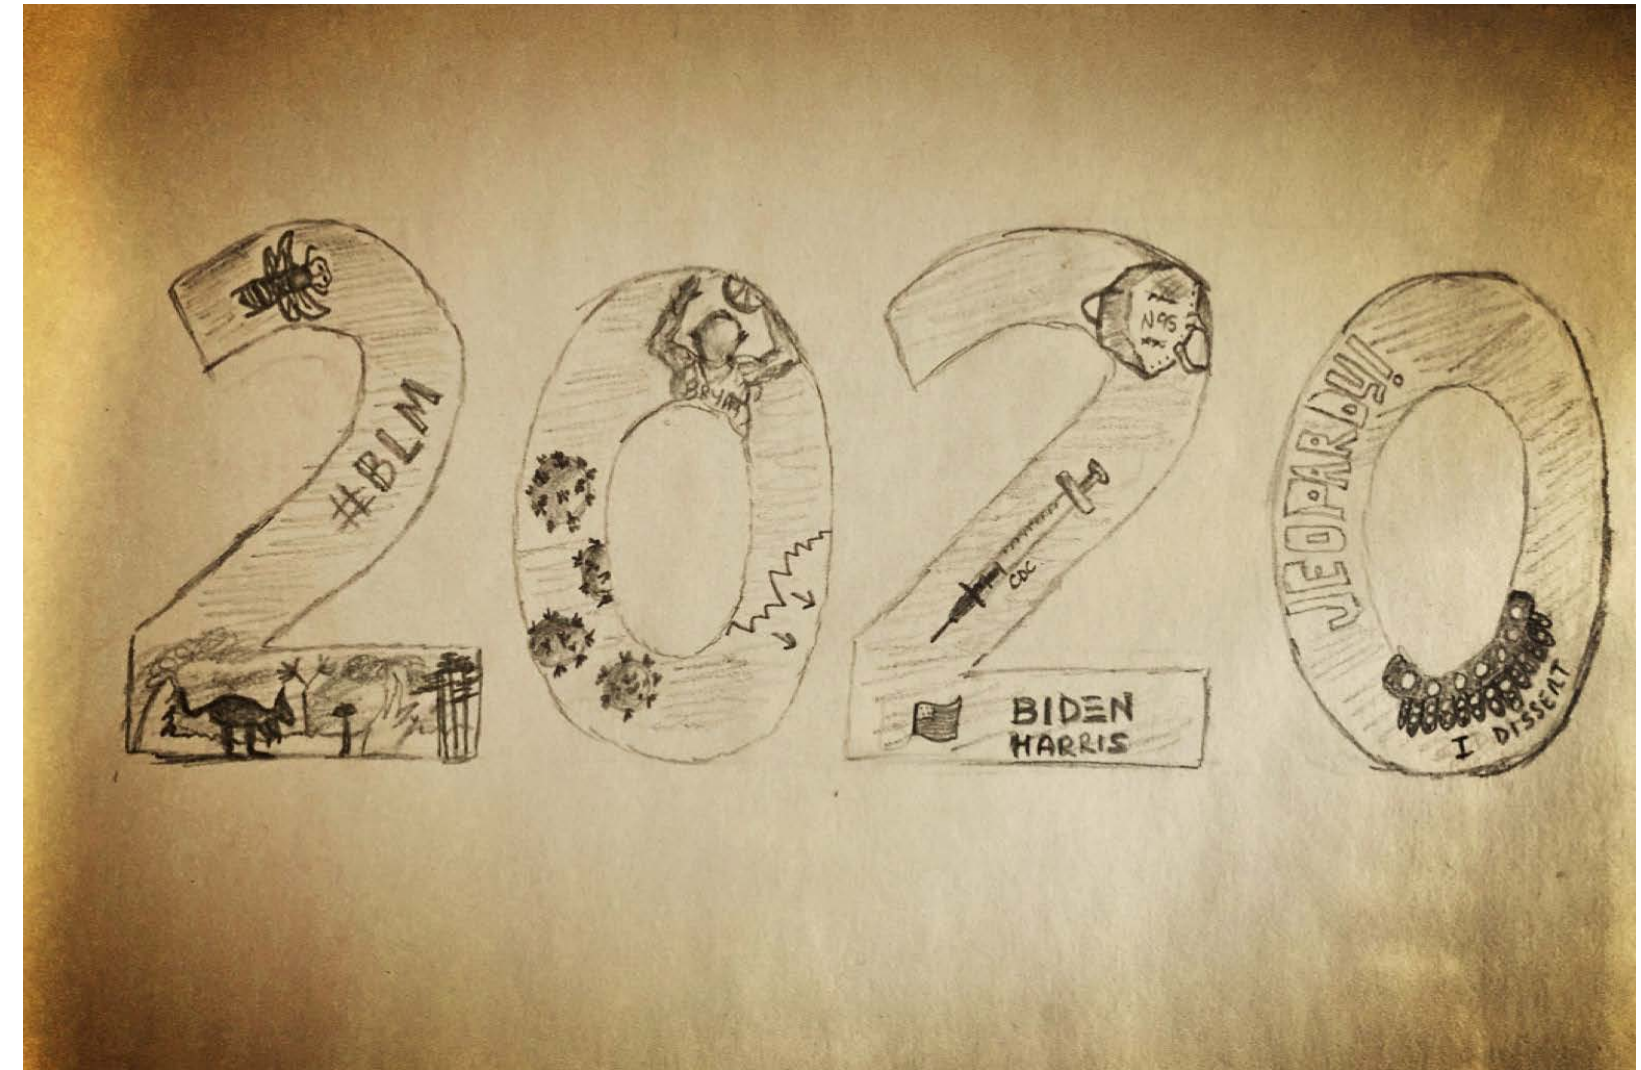 2020
#BLM
BRYANT
N95
CDC
BIDEN
HARRIS
JEOPARDY!
I DISSENT